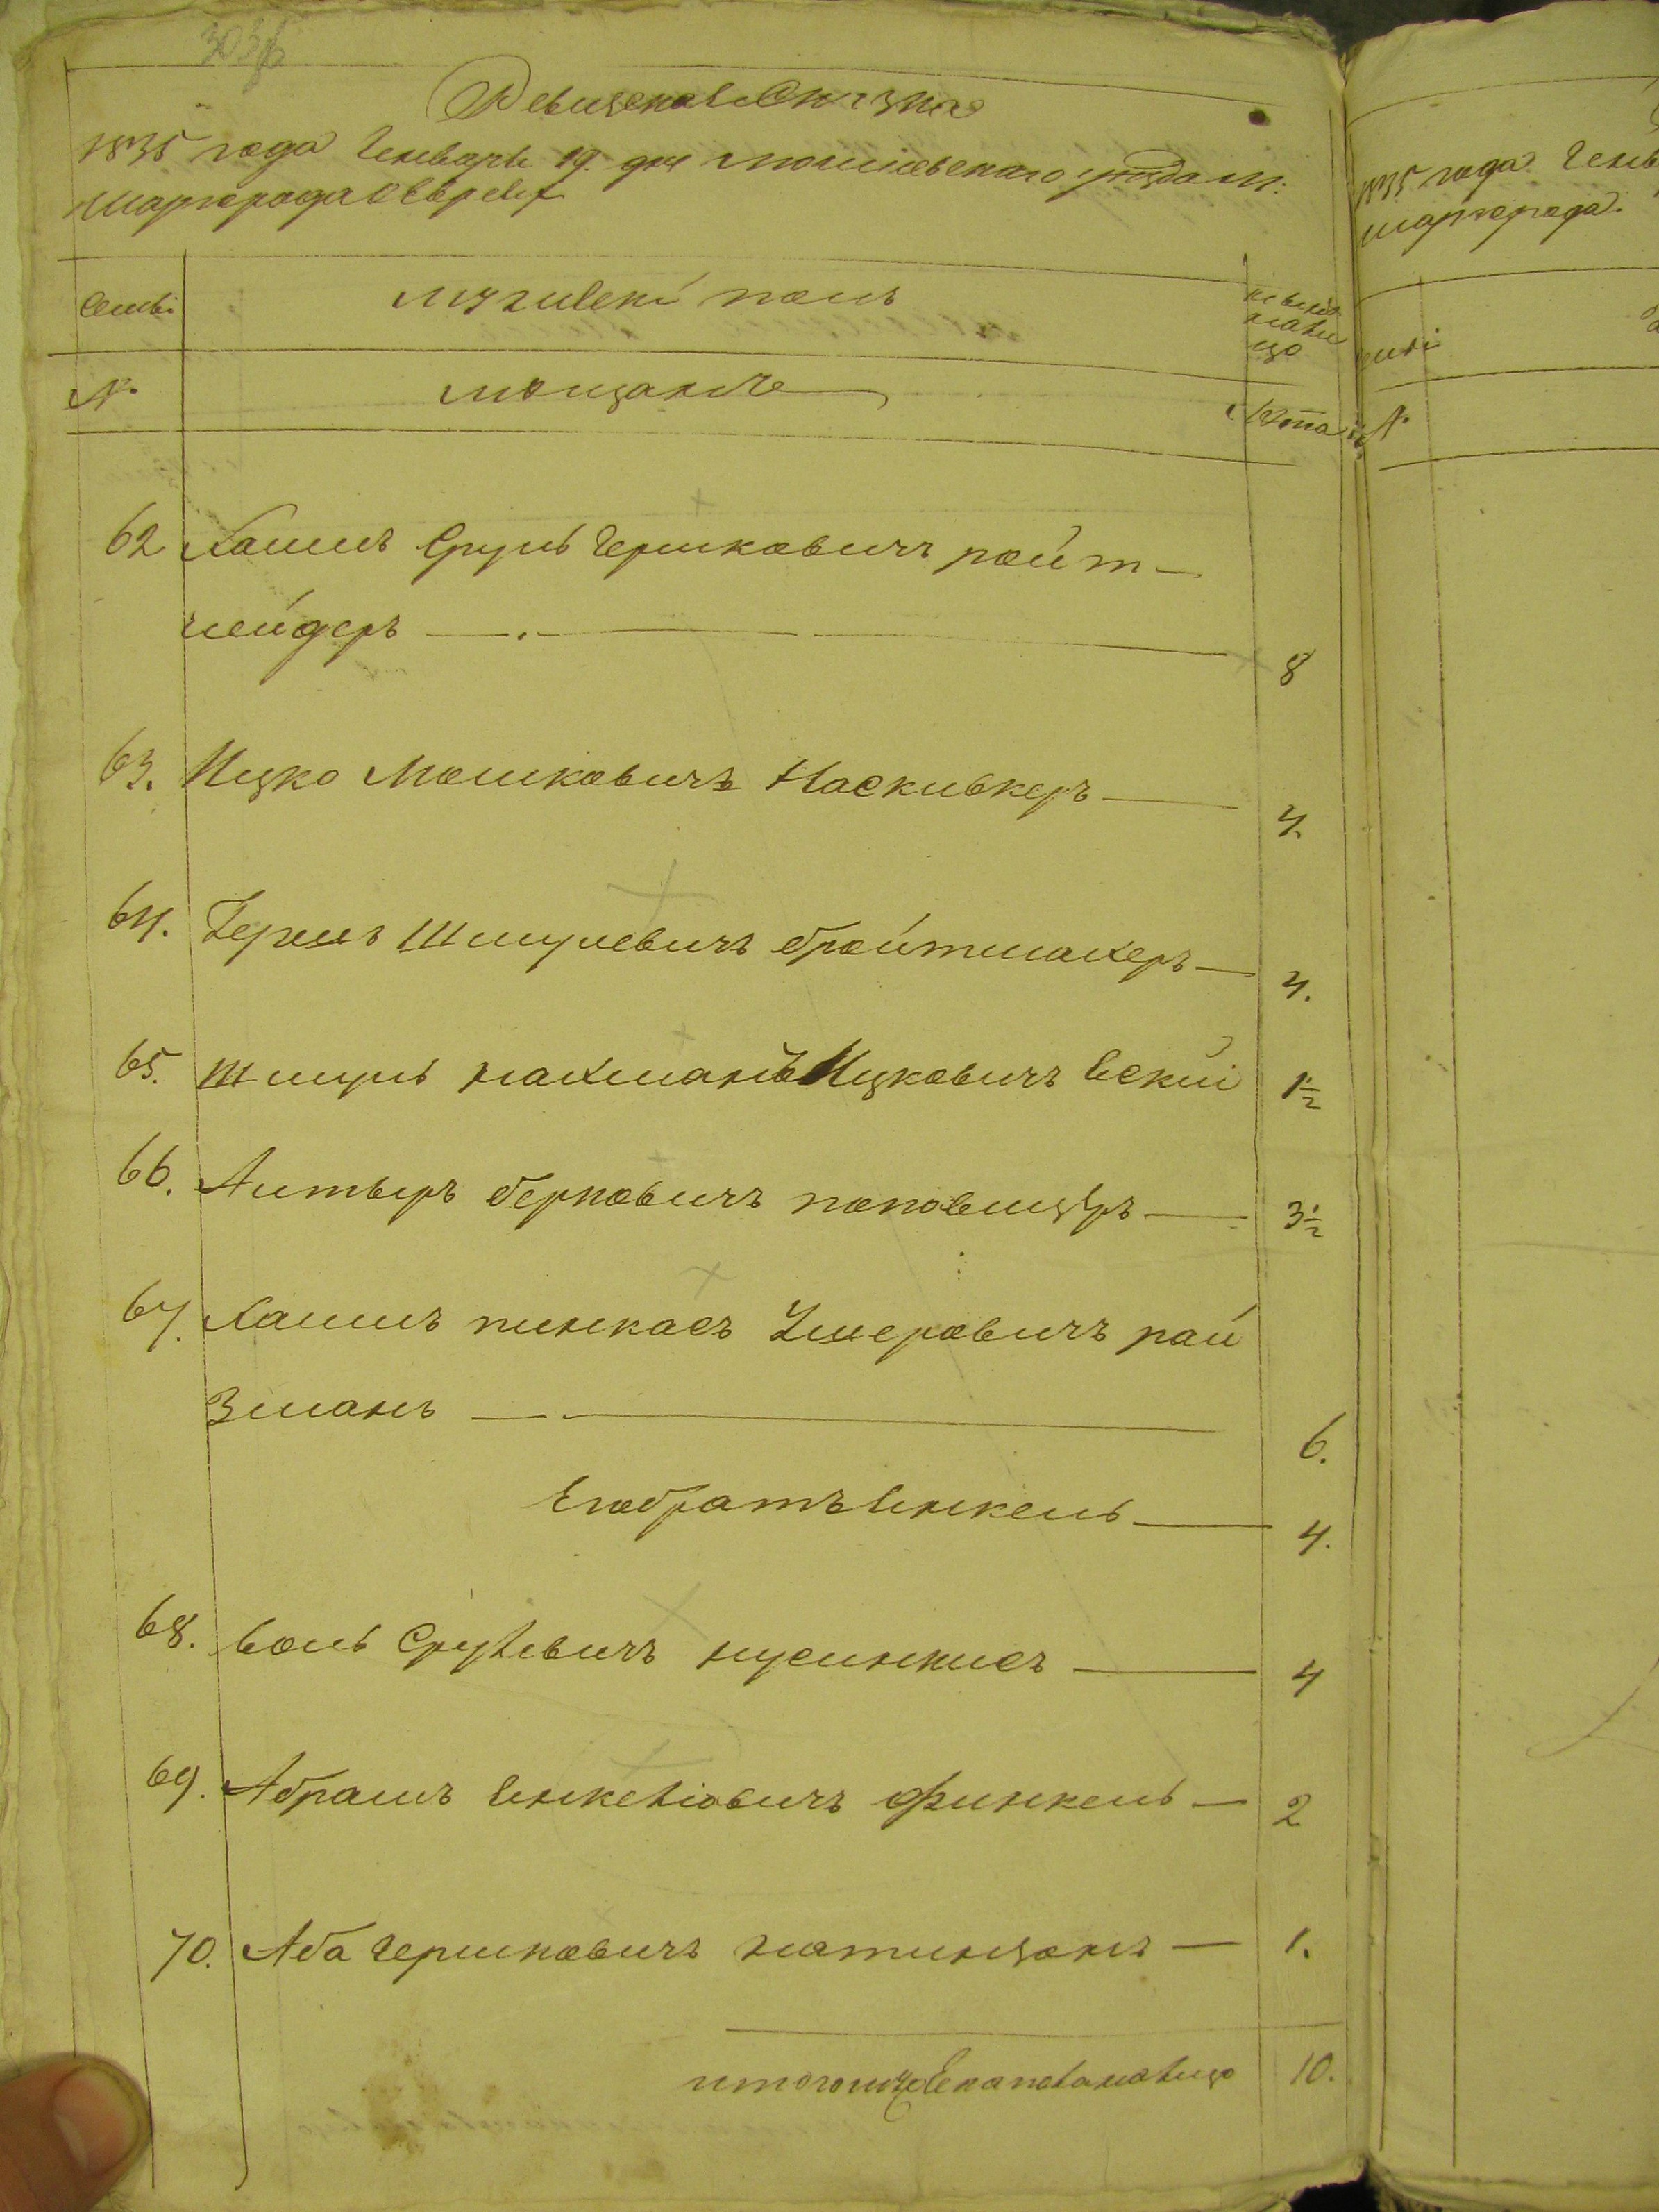 Ревизская Сказка
1835 года Генваря 19. дня могилевского уезда м:
шаргорода о евреях
семьи
мужеский полъ
на лицо
№.
мещание
лета
62 Хаимъ Сруль Гершковичъ ройт—
шнейдеръ — 8
63. Ицко Мошковичъ Носкивкеръ — 4.
64. Гершъ Шмулевичъ бройтмахеръ — 4.
65. Шмуль нахманъ Ицковичъ 1½
66. Алтыръ берковичъ поповицеръ — 3½
67. Хаимъ пинкасъ Ушеровичъ рай
зманъ — 6.
Его братъ Янкель — 4.
68. Воль Срулевичъ нусинкисъ — 4
69. Абрамъ Янкелiовичъ Финкель — 2
70. Аба гершковичъ — 1.
итого мужеска пола налицо 10.
1835 года Генв
шаргорода.
№